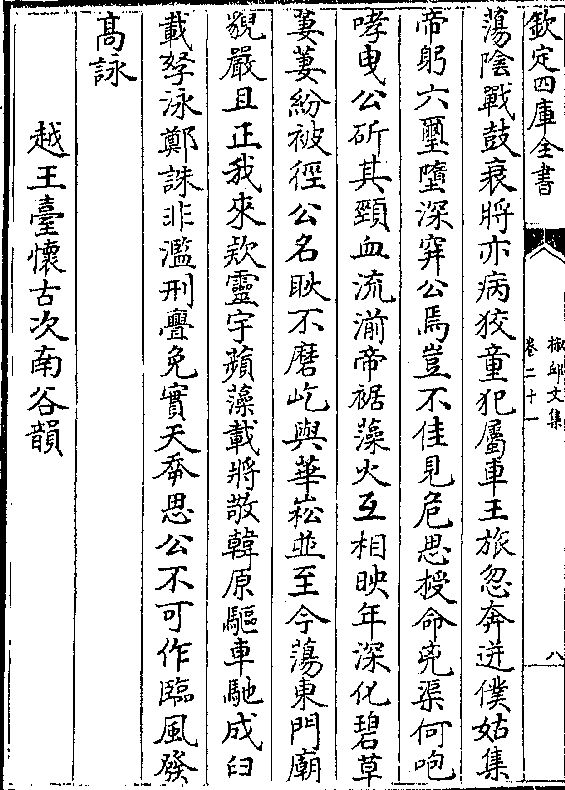 欽定四庫全書
椒邱文集
卷二十一
八
蕩陰戰鼓衰將亦病狡童犯屬車王旅忽奔迸僕姑集
帝躬六璽墮深穽公焉豈不佳見危思授命兇渠何咆
哮曳公斫其頸血流湔帝裾藻火互相映年深化碧草
萋萋紛被徑公名耿不磨屹與華崧並至今蕩東門廟
貌嚴且正我來欵靈宇蘋藻載將敬韓原驅車馳成臼
載孥泳鄭誅非濫刑舋免實天奪思公不可作臨風發
髙詠
越王臺懷古次南谷韻